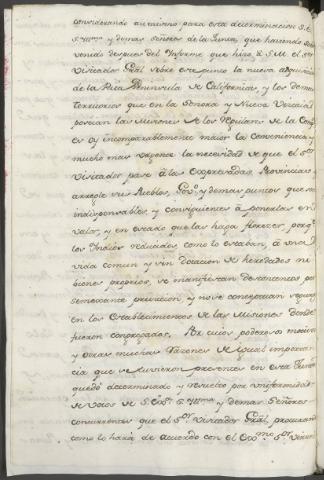 considerando asimismo para esta determinacion S.E.
S. Yllma. y demas señores de la Junta, que haviendo sobre
venido despues del Informe que hizo à S.M. el Sor.
Visitador Gral sobre este punto la nueva adquisicion
de la Peninsula de Californias, y los demas
territorios que en la Sonora y Nueva Vizcaia
poseian las Misiones de los Regulares de la Comp.
es oy incomparablemente maior la conveniencia, y
mucho mas urgente la necesidad de que el Sor.
Visitador pase à las Expresadas Provincias
arregle sus Pueblos, Govno. y demas puntos que son
indispensables, y consiguientes à ponerlas en
valor, y en estado que las haga florezer porqe.
los Indios reducidos, como lo estaban, à una
vida comun y sin dotacion de heredades ni
bienes proprios, se manifiestan descontentos por
semejante privacion, y no se conceptuan seguros
en los Establecimientos de las Misiones donde
fueron congregados. Por cuios poderosos motivos
y otras muchas razones de igual importan
cia que se tuvieron presentes en esta Junta
quedó determinado y resuelto por uniformidad
de votos de S. Exa. S. Yllma. y demas Señores
concurrentes que el Sor. Visitador Gral, procurando
como lo hará de acuerdo con el Exmo. Sor. Virrey